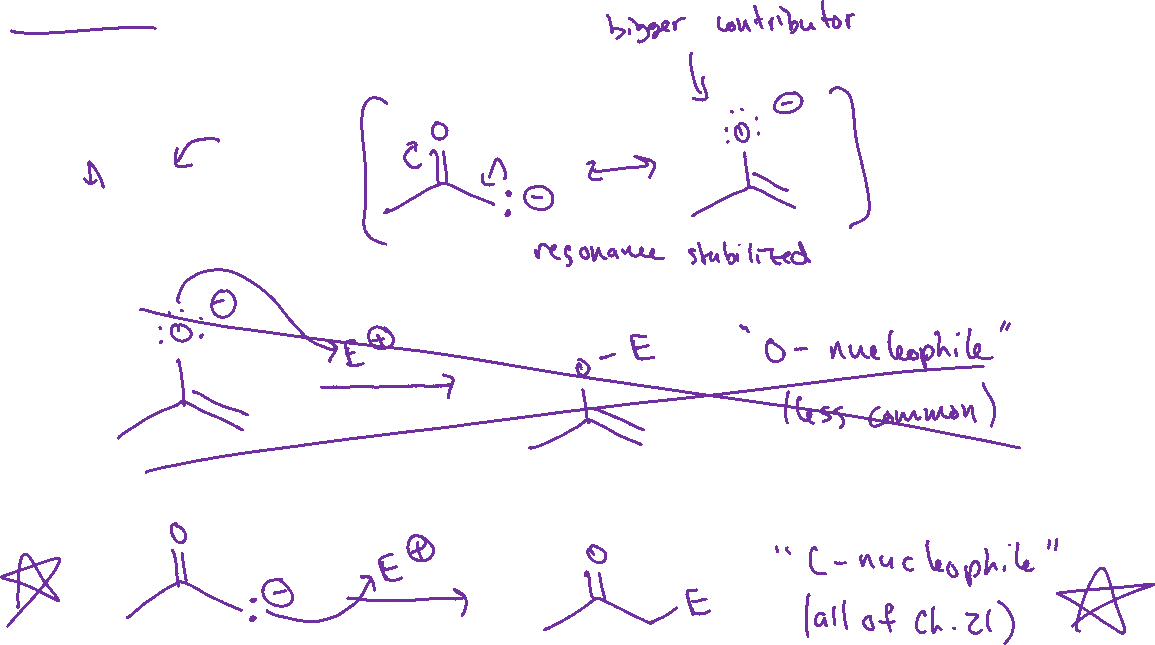 bigger contributor
O
:Ö: ⊖
: ⊖
resonance stabilized
:Ö: ⊖
E ⊕
O - E
"O - nucleophile"
(less common)
O
: ⊖
E ⊕
O
E
"C - nucleophile"
(all of Ch. 21)